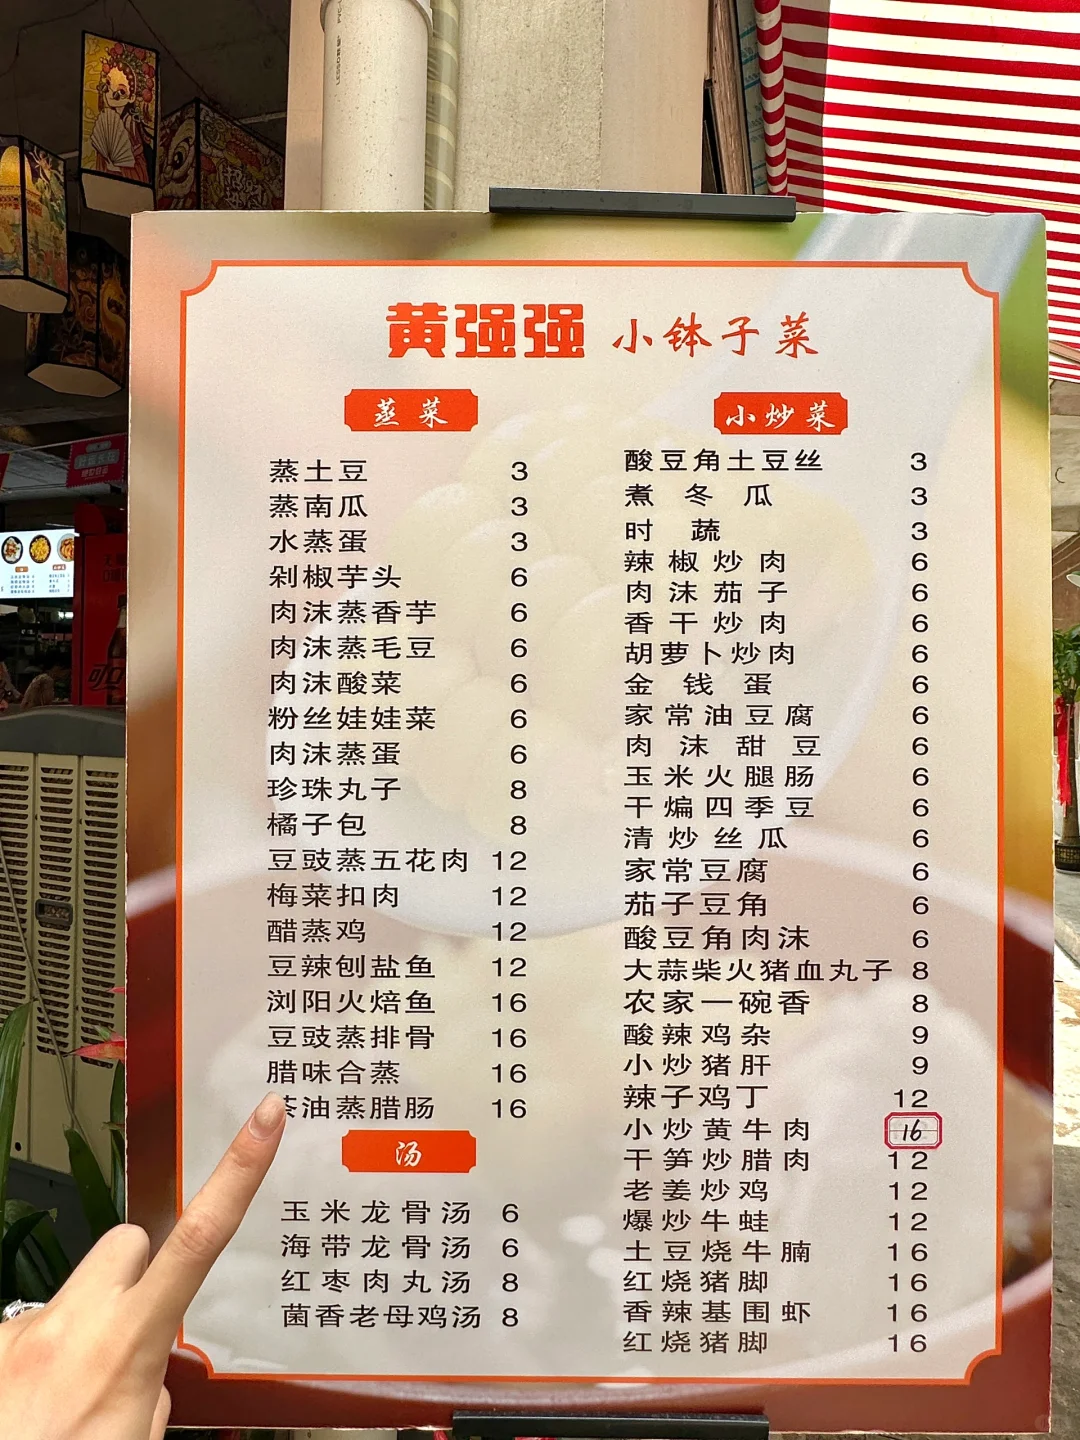 黄强强 小钵子菜
蒸菜
蒸土豆 3
蒸南瓜 3
水蒸蛋 3
剁椒芋头 6
肉沫蒸香芋 6
肉沫蒸毛豆 6
肉沫酸菜 6
粉丝娃娃菜 6
肉沫蒸蛋 6
珍珠丸子 8
橘子包 8
豆豉蒸五花肉 12
梅菜扣肉 12
醋蒸鸡 12
豆辣刨盐鱼 12
浏阳火焙鱼 16
豆豉蒸排骨 16
腊味合蒸 16
茶油蒸腊肠 16
汤
玉米龙骨汤 6
海带龙骨汤 6
红枣肉丸汤 8
菌香老母鸡汤 8
小炒菜
酸豆角土豆丝 3
煮冬瓜 3
时蔬 3
辣椒炒肉 6
肉沫茄子 6
香干炒肉 6
胡萝卜炒肉 6
金钱蛋 6
家常油豆腐 6
肉沫甜豆 6
玉米火腿肠 6
干煸四季豆 6
清炒丝瓜 6
家常豆腐 6
茄子豆角 6
酸豆角肉沫 6
大蒜柴火猪血丸子 8
农家一碗香 8
酸辣鸡杂 9
小炒猪肝 9
辣子鸡丁 12
小炒黄牛肉 16
干笋炒腊肉 12
老姜炒鸡 12
爆炒牛蛙 12
土豆烧牛腩 16
红烧猪脚 16
香辣基围虾 16
红烧猪脚 16